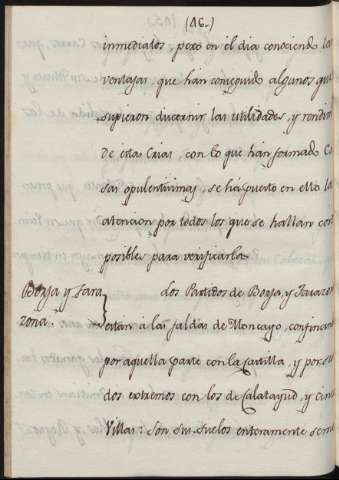 (16.)
inmediatos, pero en el dia conociendo las
ventajas, que han conseguido algunos que
supieron discernir las utilidades, y rendim
de estas Crias, con lo que han formado Ca
sas opulentisimas, se ha puesto en ello la
atencion por todos los que se hallan con
posibles para verificarla.
Borja y Tara
zona.
Los Partidos de Borja, y Tarazon
estàn à las faldas de Moncayo, confinando
por aquella parte con la Castilla, y por su
dos extremos con los de Calatayud, y Cinco
Villas: son sus suelos enteramente seme